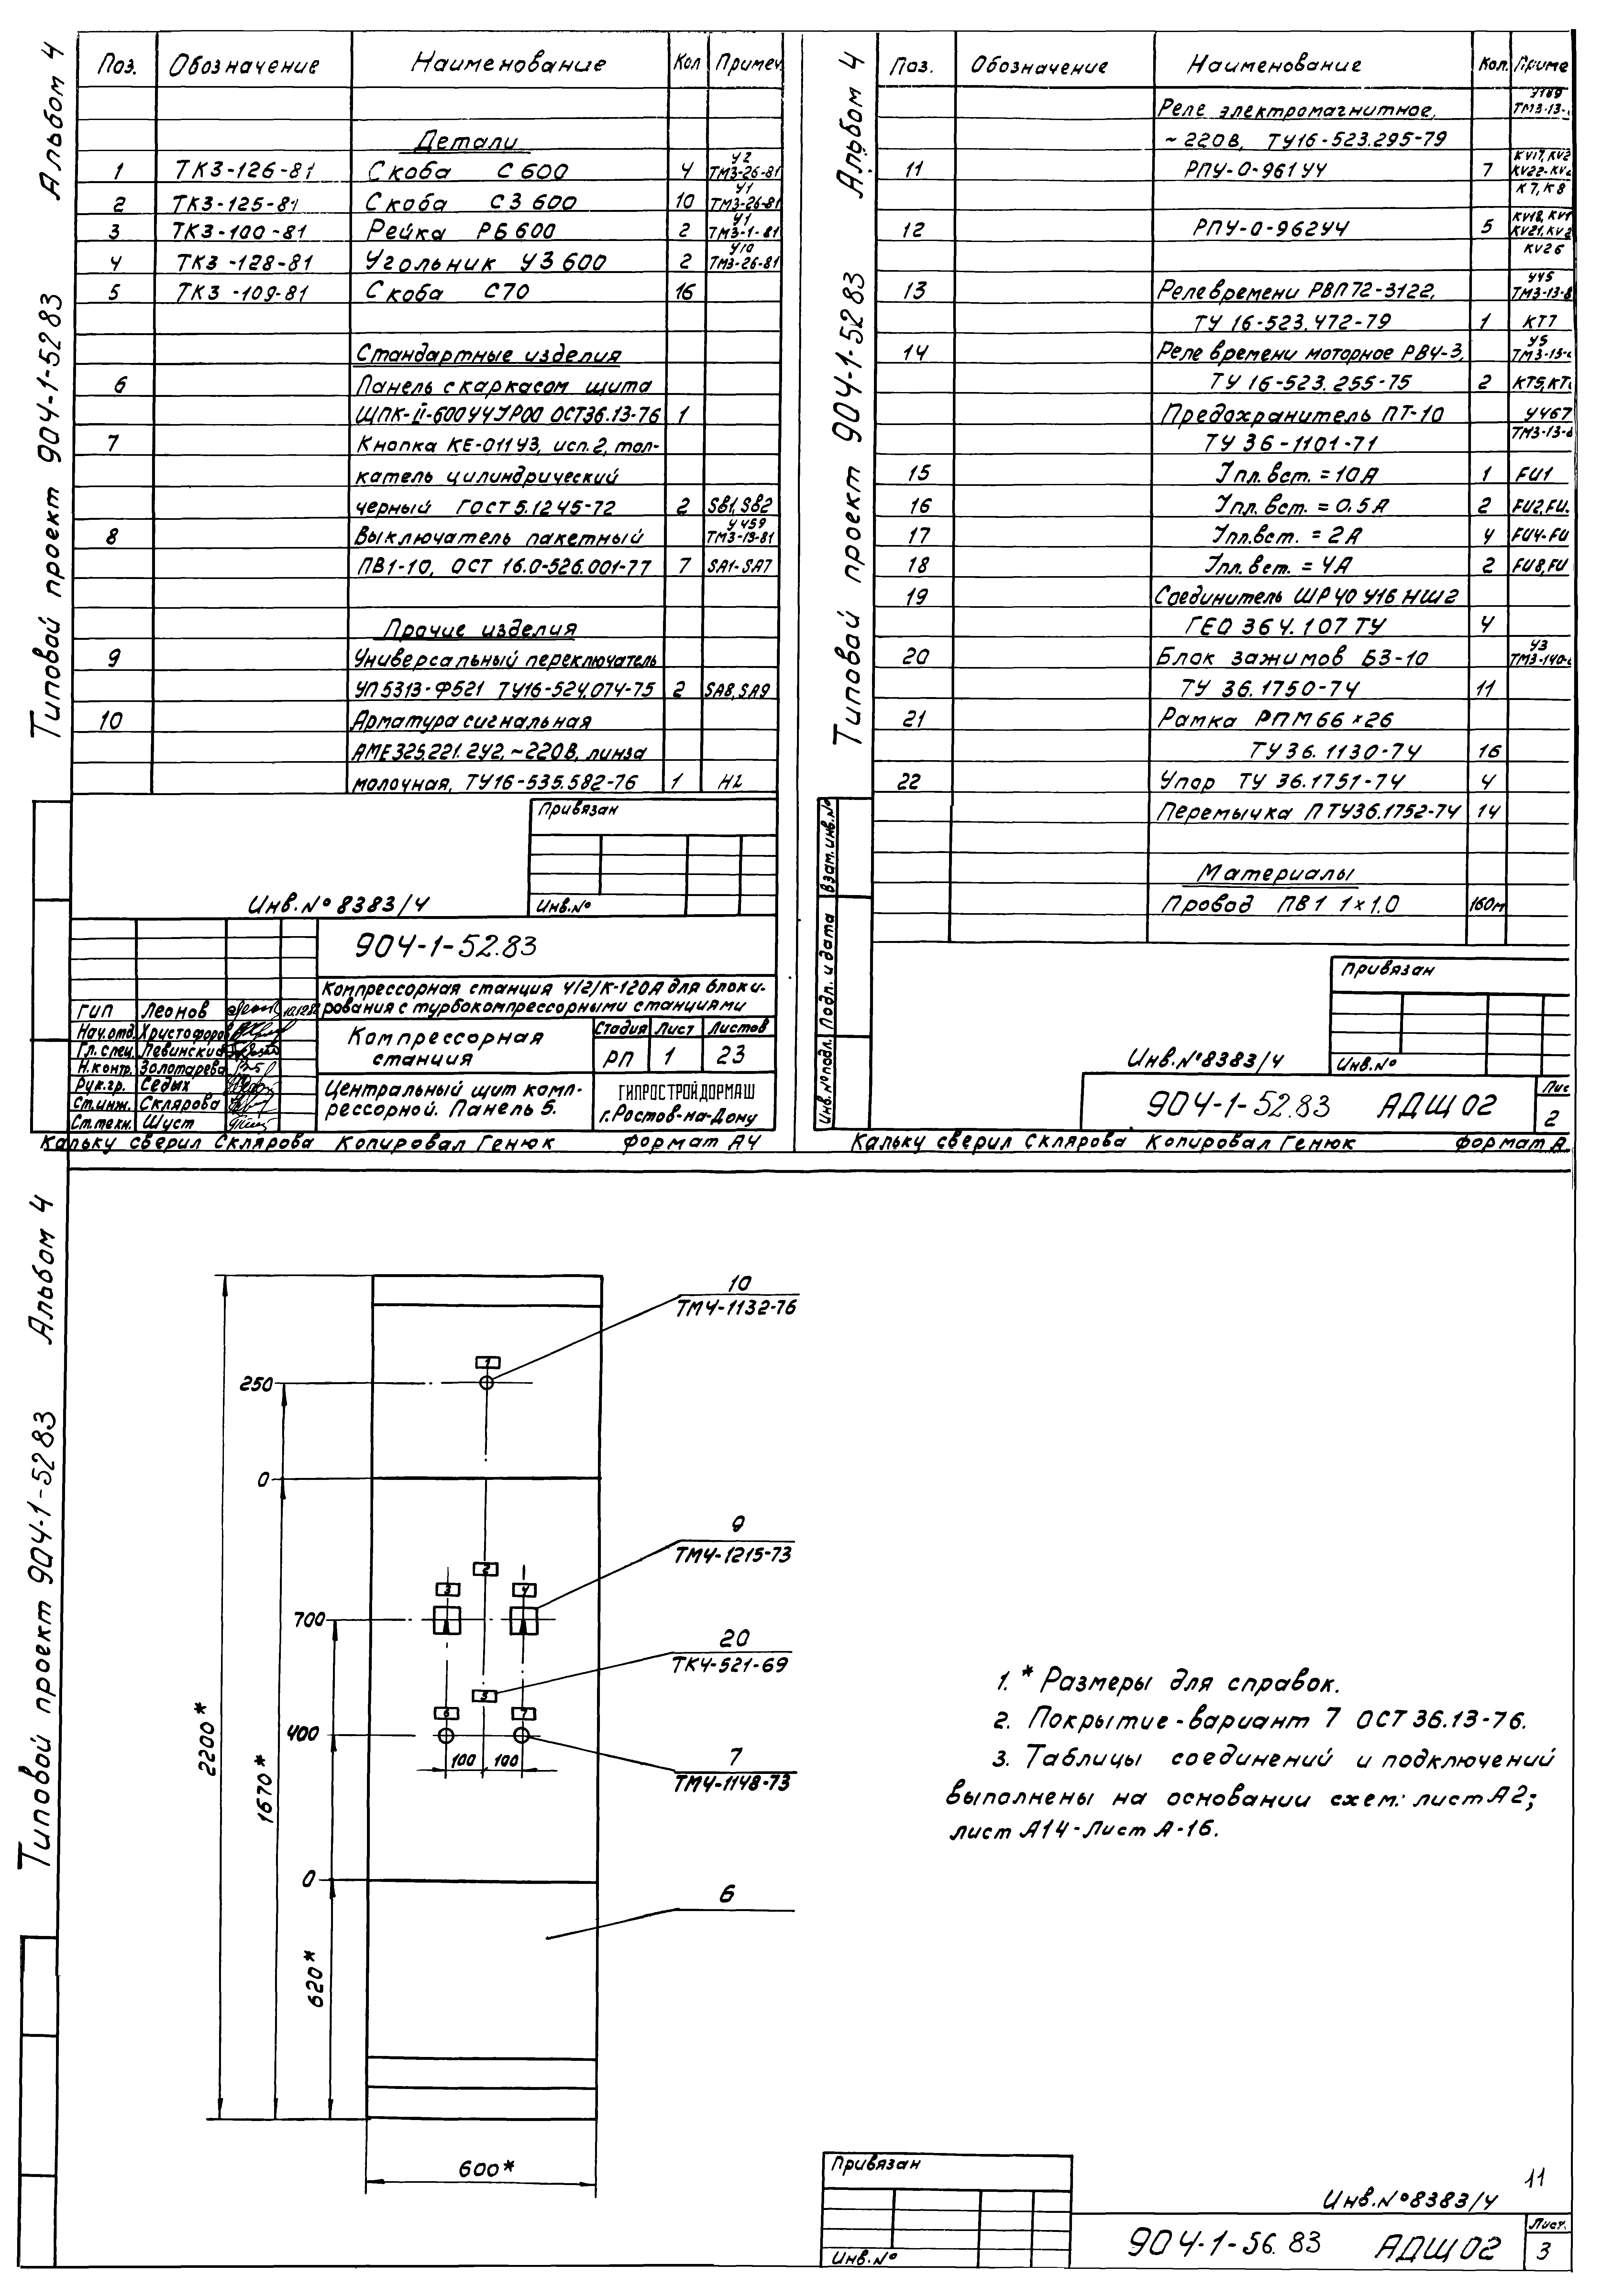 Альбом 4
Типовой проект 904-1-52 83
Поз. Обозначение Наименование Кол Примеч.
Детали
1 ТК3-126-81 Скоба С 600 4 У2 ТМ3-26-81
2 ТК3-125-81 Скоба С3 600 10 У1 ТМ3-26-81
3 ТК3-100-81 Рейка РБ 600 2 У1 ТМ3-1-81
4 ТК3-128-81 Угольник У3 600 2 У10 ТМ3-26-81
5 ТК3-109-81 Скоба С70 16
Стандартные изделия
6 Панель с каркасом щита
ЩПК-II-600 У4 УР00 ОСТ36.13-76 1
7 Кнопка КЕ-011У3, исп. 2, тол-
катель цилиндрический
черный ГОСТ 5.1245-72 2 SB1, SB2
8 Выключатель пакетный У459 ТМ3-13-81
ПВ1-10, ОСТ 16.0-526.001-77 7 SA1-SA7
Прочие изделия
9 Универсальный переключатель
УП5313-Ф521 ТУ16-524.074-75 2 SA8, SA9
10 Арматура сигнальная
АМЕ325.221.2У2, ~220В, линза
молочная, ТУ16-535.582-76 1 HL
Привязан
Инв.№
Инв.№ 8383/4
904-1-52.83
Компрессорная станция 4/2/К-120А для блоки-
рования с турбокомпрессорными станциями
ГИП Леонов
Нач.отд. Христофоров
Гл. спец. Левинский
Н.контр. Золотарева
Рук.гр. Седых
Ст.инж. Склярова
Ст.техн. Шуст
Компрессорная
станция
Стадия Лист Листов
РП 1 23
Центральный щит комп-
рессорной. Панель 5.
ГИПРОСТРОЙДОРМАШ
г.Ростов-на-Дону
Кальку сверил Склярова Копировал Генюк Формат А4
Альбом 4
Типовой проект 904-1-52 83
Поз. Обозначение Наименование Кол. Приме
Реле электромагнитное, У169 ТМ3-13-
~220В, ТУ16-523.295-79
11 РПУ-0-961 У4 7 KV17, KV2
KV22-KV2
К7, К8
12 РПУ-0-962У4 5 KV18, KV1
KV21, KV2
KV26
13 Реле времени РВП72-3122, У45 ТМ3-13-8
ТУ 16-523.472-79 1 КТ7
14 Реле времени моторное РВ4-3, У5 ТМ3-13-
ТУ 16-523.255-75 2 КТ5, КТ
Предохранитель ПТ-10 У467
ТУ 36-1101-71 ТМ3-13-
15 Iпл.вст. = 10А 1 FU1
16 Iпл.вст. = 0.5А 2 FU2, FU
17 Iпл.вст. = 2А 4 FU4-FU
18 Iпл.вст. = 4А 2 FU8, FU
19 Соединитель ШР40 У16 НШ2
ГЕО 364.107 ТУ 4
20 Блок зажимов БЗ-10 У3 ТМ3-140-
ТУ 36.1750-74 11
21 Рамка РПМ 66×26
ТУ 36.1130-74 16
22 Упор ТУ 36.1751-74 4
Перемычка П ТУ36.1752-74 14
Материалы
Провод ПВ1 1×1.0 160м
Взам.инв.№
Подп. и дата
Инв.№подл.
Привязан
Инв.№
Инв.№8383/4
904-1-52.83 АДЩ 02
Лис
2
Кальку сверил Склярова Копировал Генюк Формат А
Альбом 4
Типовой проект 904-1-52 83
10
ТМ4-1132-76
1
250
0
9
ТМ4-1215-73
2
3 4
700
20
ТК4-521-69
5
6 7
400
100 100
7
ТМ4-1148-73
0
6
2200*
1670*
620*
600*
1. * Размеры для справок.
2. Покрытие-вариант 7 ОСТ 36.13-76.
3. Таблицы соединений и подключений
выполнены на основании схем: лист А2;
лист А14-Лист А-16.
Привязан
Инв.№
11
Инв.№8383/4
904-1-56.83 АДЩ 02
Лист.
3